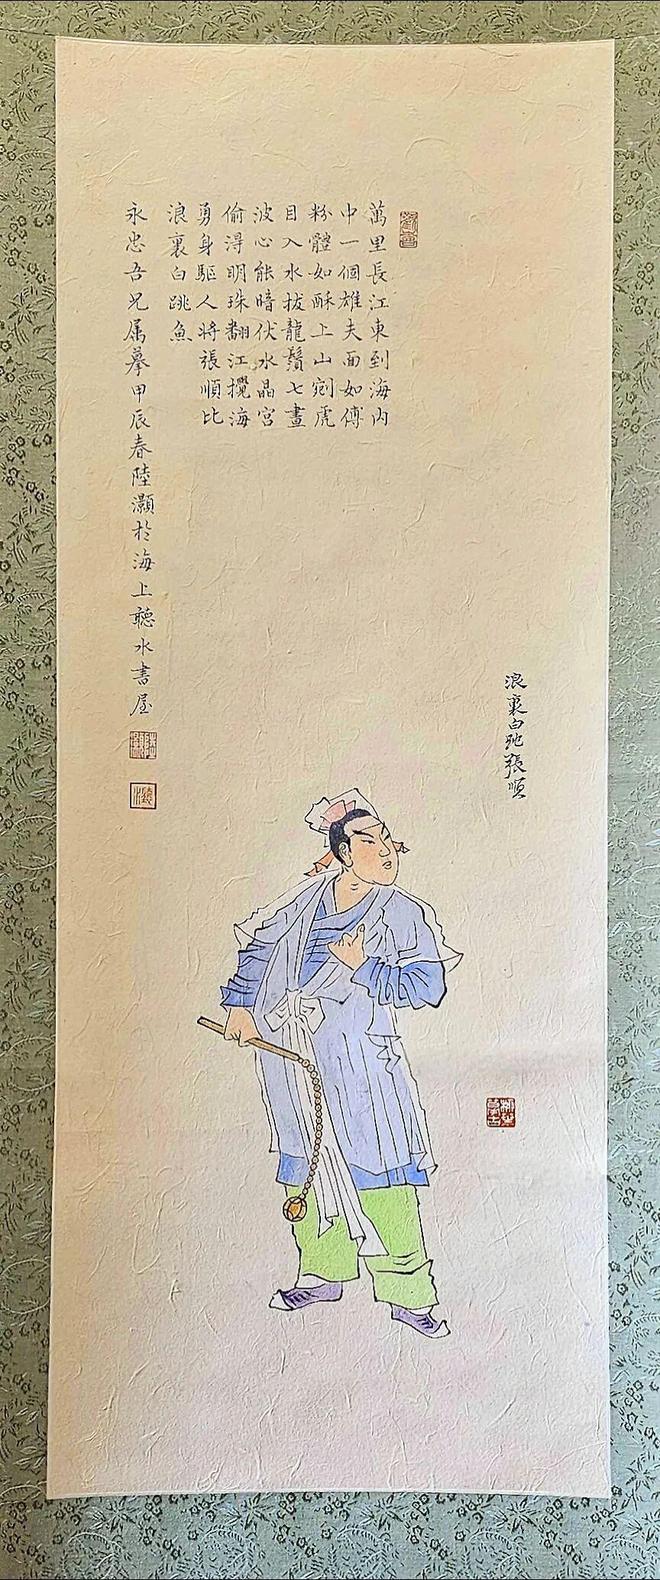 萬里長江東到海内
中一個雄夫面如傅
粉體如酥上山剜虎
目入水拔龍鬚七晝
波心能暗伏水晶宮
偷得明珠翻江攪海
勇身驅人將張順比
浪裏白跳魚
永忠吾兄属摹甲辰春陸灝於海上聽水書屋
浪裏白跳張順